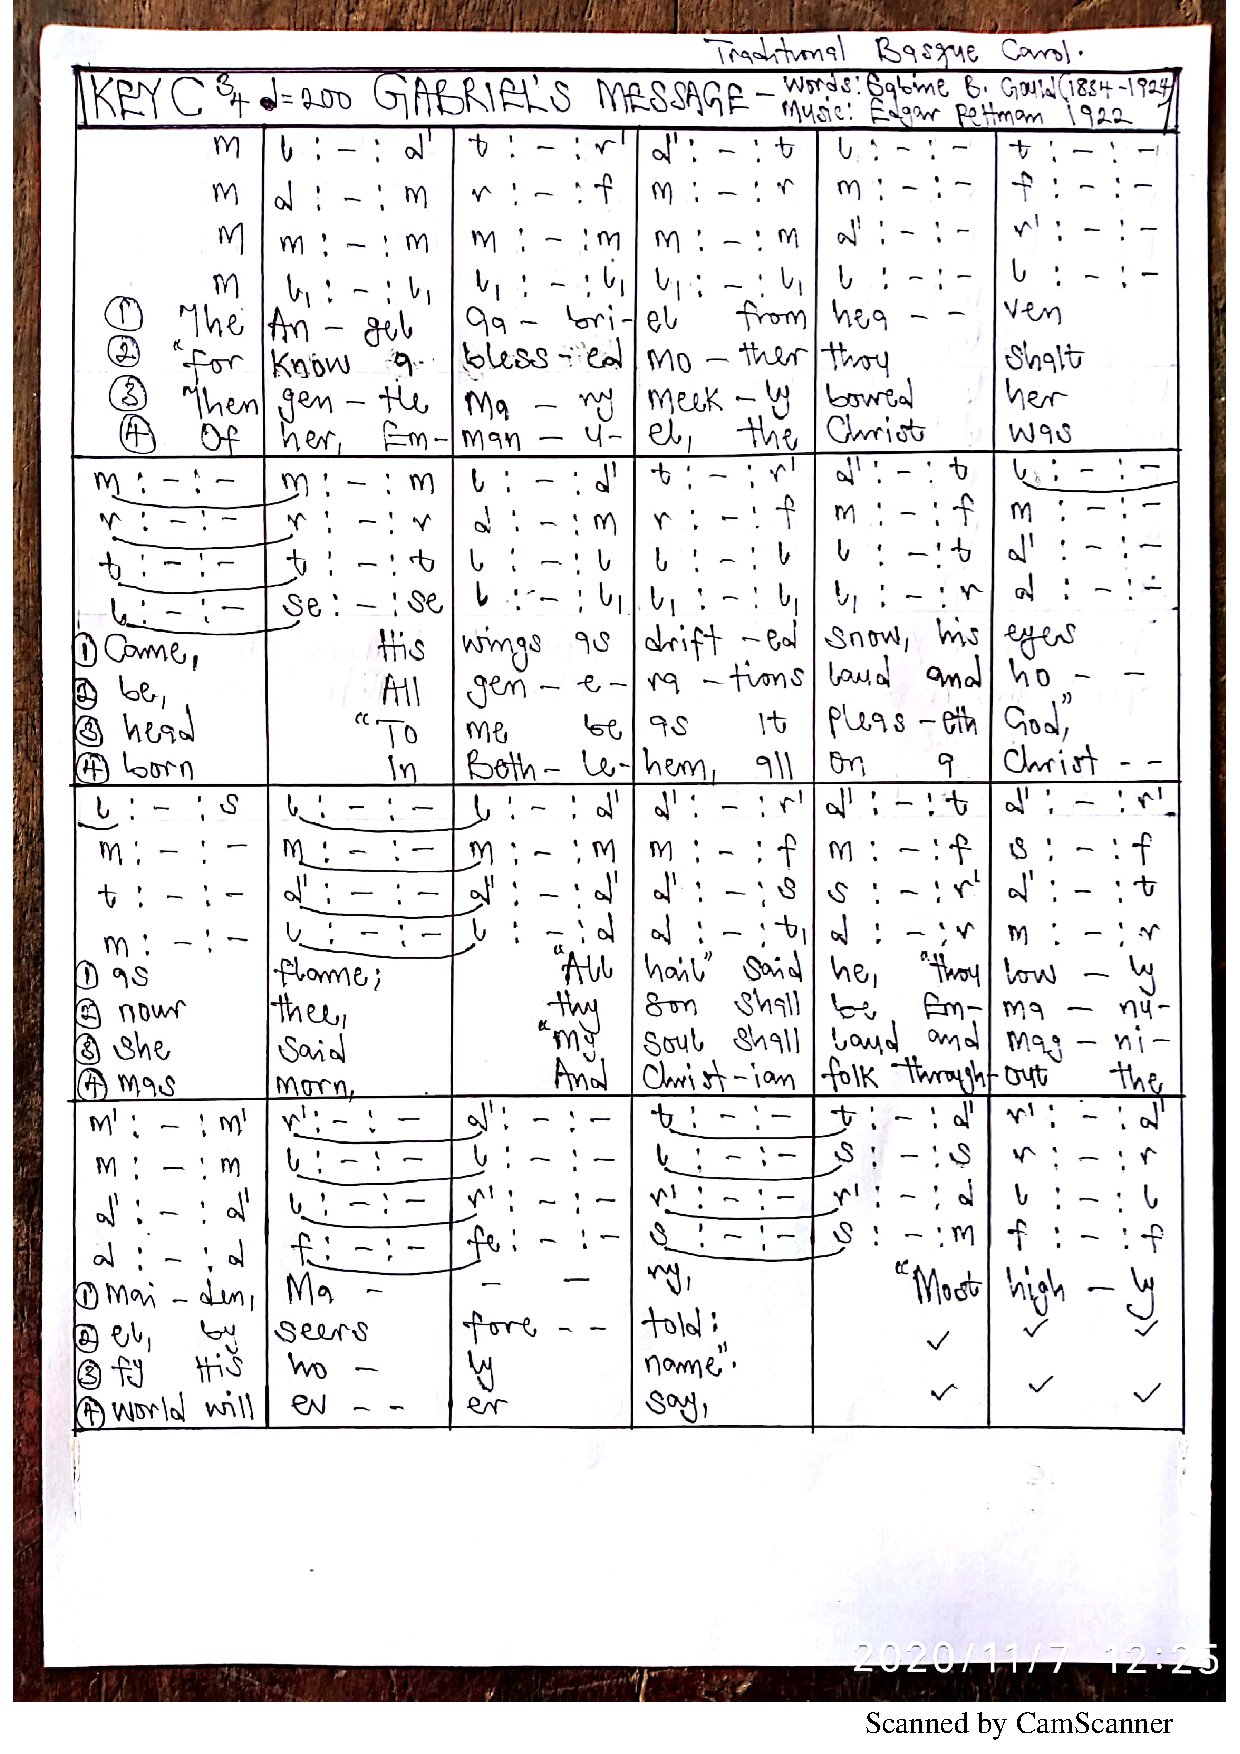 Traditional Basque Carol.
KEY C 3/4 d=200 GABRIEL'S MESSAGE - Words: Sabine B. Gould (1834-1924)
Music: Edgar Pettman 1922
m | l : - : d' | t : - : r' | d' : - : t | l : - : - | t : - : -
m | d : - : m | r : - : f | m : - : r | m : - : - | f : - : -
m | m : - : m | m : - : m | m : - : m | d' : - : - | r' : - : -
m | l₁ : - : l₁ | l₁ : - : l₁ | l₁ : - : l₁ | l : - : - | l : - : -
① "The | An - gel | Ga - bri- | el from | hea - - | ven
② "for | know a | bless - ed | Mo - ther | thou | shalt
③ Then | gen - tle | Ma - ry | meek - ly | bowed | her
④ Of | her, Em- | man - u- | el, the | Christ | was
m : - : - | m : - : m | l : - : d' | t : - : r' | d' : - : t | l : - : -
r : - : - | r : - : r | d : - : m | r : - : f | m : - : f | m : - : -
t : - : - | t : - : t | l : - : l | l : - : l | l : - : t | d' : - : -
l : - : - | se : - : se | l : - : l₁ | l₁ : - : l₁ | l₁ : - : r | d : - : -
① Came, | His | wings as | drift - ed | snow, his | eyes
② be, | All | gen - e - | ra - tions | laud and | ho - -
③ head | "To | me be | as it | pleas - eth | God,"
④ born | In | Beth - le- | hem, all | on a | Christ - -
l : - : s | l : - : - | l : - : d' | d' : - : r' | d' : - : t | d' : - : r'
m : - : - | m : - : - | m : - : m | m : - : f | m : - : f | s : - : f
t : - : - | d' : - : - | d' : - : d' | d' : - : s | s : - : r' | d' : - : t
m : - : - | l : - : - | l : - : d | d : - : t₁ | d : - : r | m : - : r
① as | flame; | "All | hail" said | he, "thou | low - ly
② nour | thee, | thy | Son shall | be Em- | ma - nu-
③ she | said | "my | soul shall | laud and | mag - ni-
④ mas | morn, | And | Christ - ian | folk through- | out the
m' : - : m' | r' : - : - | d' : - : - | t : - : - | t : - : d' | r' : - : d'
m : - : m | l : - : - | l : - : - | l : - : - | s : - : s | r : - : r
d' : - : d' | l : - : - | r' : - : - | r' : - : - | r' : - : d | l : - : l
d : - : d | f : - : - | fe : - : - | s : - : - | s : - : m | f : - : f
① mai - den, | Ma - | - - | ry, | "Most | high - ly
② el, by | seers | fore - - | told: | ✓ | ✓ ✓
③ fy His | ho - | ly | name".
④ world will | ev - - | er | say, | ✓ | ✓ ✓
2020/11/7 12:25
Scanned by CamScanner